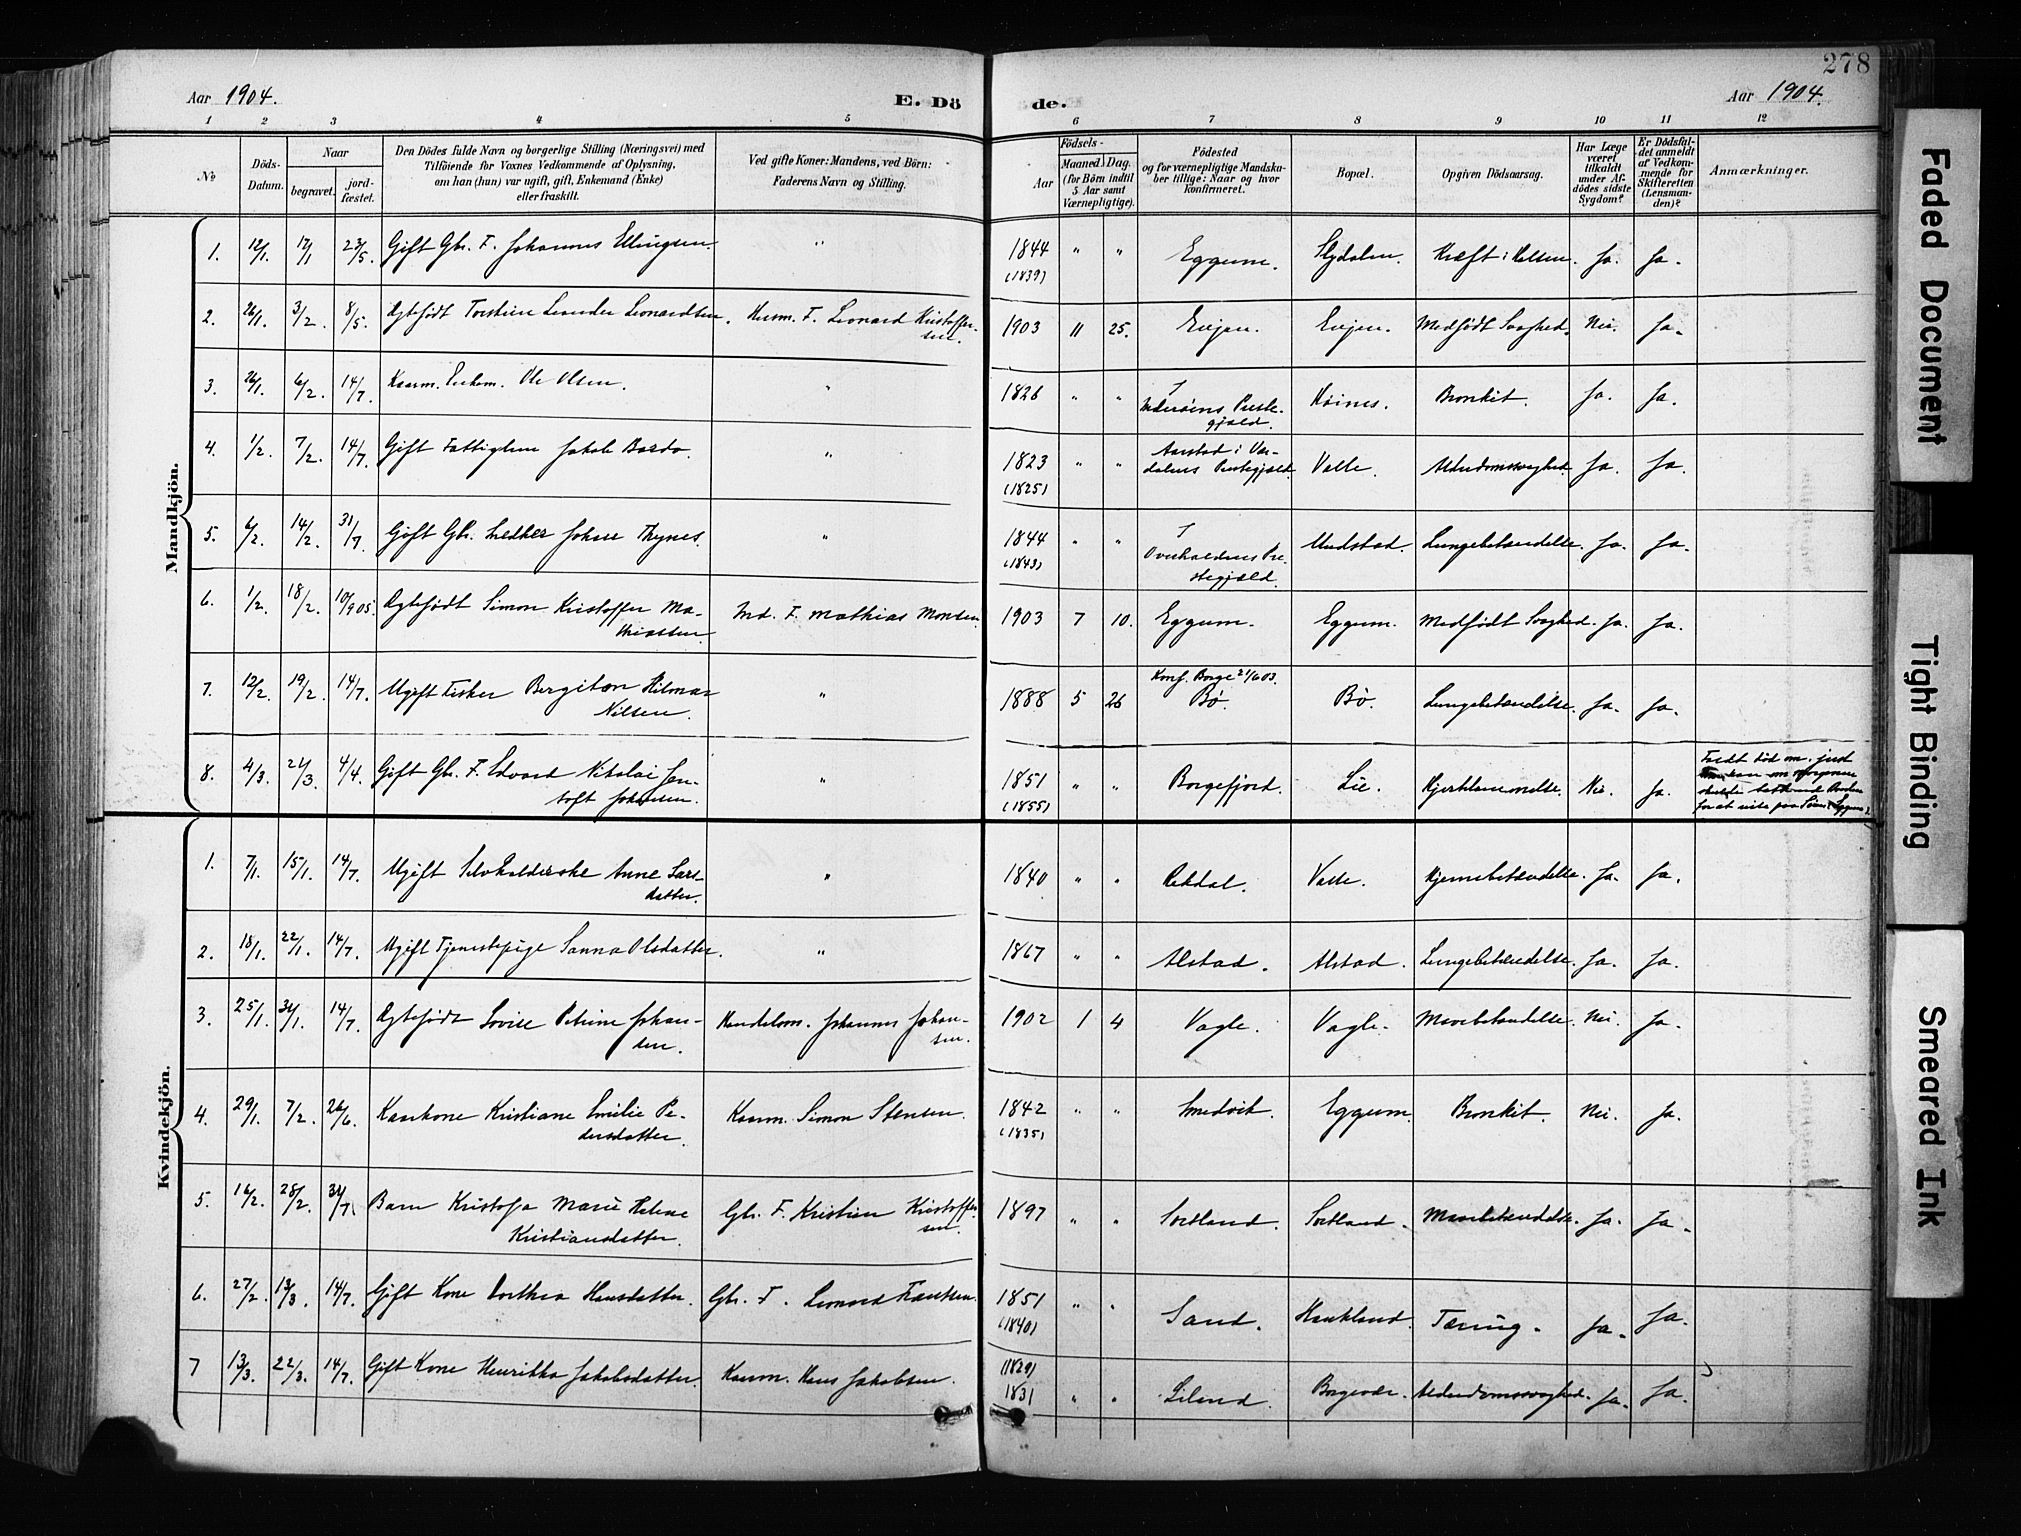 278
Aar 1904.
E. Dö
de.
Aar 1904.
1 2 3 4 5 6 7 8 9 10 11 12
No
Döds-Datum.
Naar
begravet.
jord-fæstet.
Den Dödes fulde Navn og borgerlige Stilling (Næringsvei) med
Tilföiende for Voxnes Vedkommende af Oplysning,
om han (hun) var ugift, gift, Enkemand (Enke)
eller fraskilt.
Ved gifte Koner: Mandens, ved Börn:
Faderens Navn og Stilling.
Födsels-
Aar
Maaned. Dag.
(for Börn indtil
5 Aar samt
Værnepligtige).
Födested
og for værnepligtige Mandsku-
ber tillige: Naar og hvor
konfirmeret.
Bopæl.
Opgiven Dödsaarsag.
Har Læge
været
tilkaldt
under Af-
dödes sidste
Sygdom?
Er Dödsfal-
det anmeldt
af Vedkom-
mende for
Skifteretten
(Lensman-
den)?
Anmærkninger.
Mandkjön.
1. 12/1. 17/1 23/5. Gift Gbr. F. Johannes Ellingsen. " 1844 " " Eggum. Kræft i Halsen. Ja. Ja.
(1839)
2. 26/1. 3/2. 8/5. Ægtefödt Torstein Leander Leonardsen. Husm. F. Leonard Kristoffer-
sen.
1903 11 25. Evjen. Evjen. Medfödt Svaghed. Nei. Ja.
3. 26/1. 6/2. 14/7. Kaarm. Enkem. Ole Olsen. " 1826 " " I
Inderöens Preste-
gjæld.
Höines. Bronkit. Ja. Ja.
4. 1/2. 7/2. 14/7. Gift Fattiglem Jakob Bardo. " 1823 " " Aarstad i Vær-
dalens Prestegjæld. Valle. Alderdomssvaghed. Ja. Ja.
(1825)
5. 6/2. 14/2. 31/7. Gift Gbr. Johan Thynes. " 1844 " " I
Overhaldens Pre-
stegjæld.
Undstad. Lungebetændelse. Ja. Ja.
(1843)
6. 1/2. 18/2. 10/9 05. Ægtefödt Simon Kristoffer Ma-
thiassen
Ind. F. Mathias Monsen. 1903 7 10. Eggum. Eggum. Medfödt Svaghed. Ja. Ja.
7. 12/2. 19/2. 14/7. Ugift Fisker Bergiton Hilmar
Nilsen.
" 1888 5 26 Konf. Borge 21/6 03.
Bö. Bö. Lungebetændelse. Ja. Ja.
8. 4/3. 21/3. 4/4. Gift Gbr. F. Edvard Nikolai Jen-
toft Johansen.
" 1851 " " Borgefjord. Lie. Hjertelammelse. Nei. Ja.
(1855)
Kvindekjön.
1. 7/1. 15/1. 14/7. Ugift Selvholderske Anne Lars-
datter.
" 1840 " " Rekdal. Valle. Hjernebetændelse. Ja. Ja.
2. 18/1. 22/1. 14/7. Ugift Tjenestepige Sanna Olsdatter. " 1867 " " Alstad. Alstad. Lungebetændelse. Ja. Ja.
3. 25/1. 31/1. 14/7. Ægtefödt Lovise Petrine Johan-
sen.
Handelsm. Johannes Johan-
sen.
1902 1 4 Vagle. Vagle. Mavebetændelse. Nei. Ja.
4. 29/1. 7/2. 26/6. Kaarkone Kristiane Emilie Pe-
dersdatter.
Kaarm. Simon Stensen. 1842 " " Smedvik. Eggum. Bronkit. Nei. Ja.
(1835)
5. 16/2. 28/2. 31/7. Barn Kristofa Marie Helene
Kristiansdatter.
Gbr. F. Kristian Kristoffer-
sen.
1897 " " Sortland. Sortland. Mavebetændelse. Ja. Ja.
6. 27/2. 13/3. 14/7. Gift Kone Dorthea Hansdatter. Gbr. F. Leonard Frantsen. 1851 " " Sand. Haukland. Tæring. Ja. Ja.
(1840)
7 13/3. 22/3. 14/7. Gift Kone Henrikka Jakobsdatter. Kaarm. Hans Jakobsen. (1829)
1831 " " Lilend. Alderdomssvaghed. Ja. Ja.
Faded Document
Tight Binding
Smeared Ink